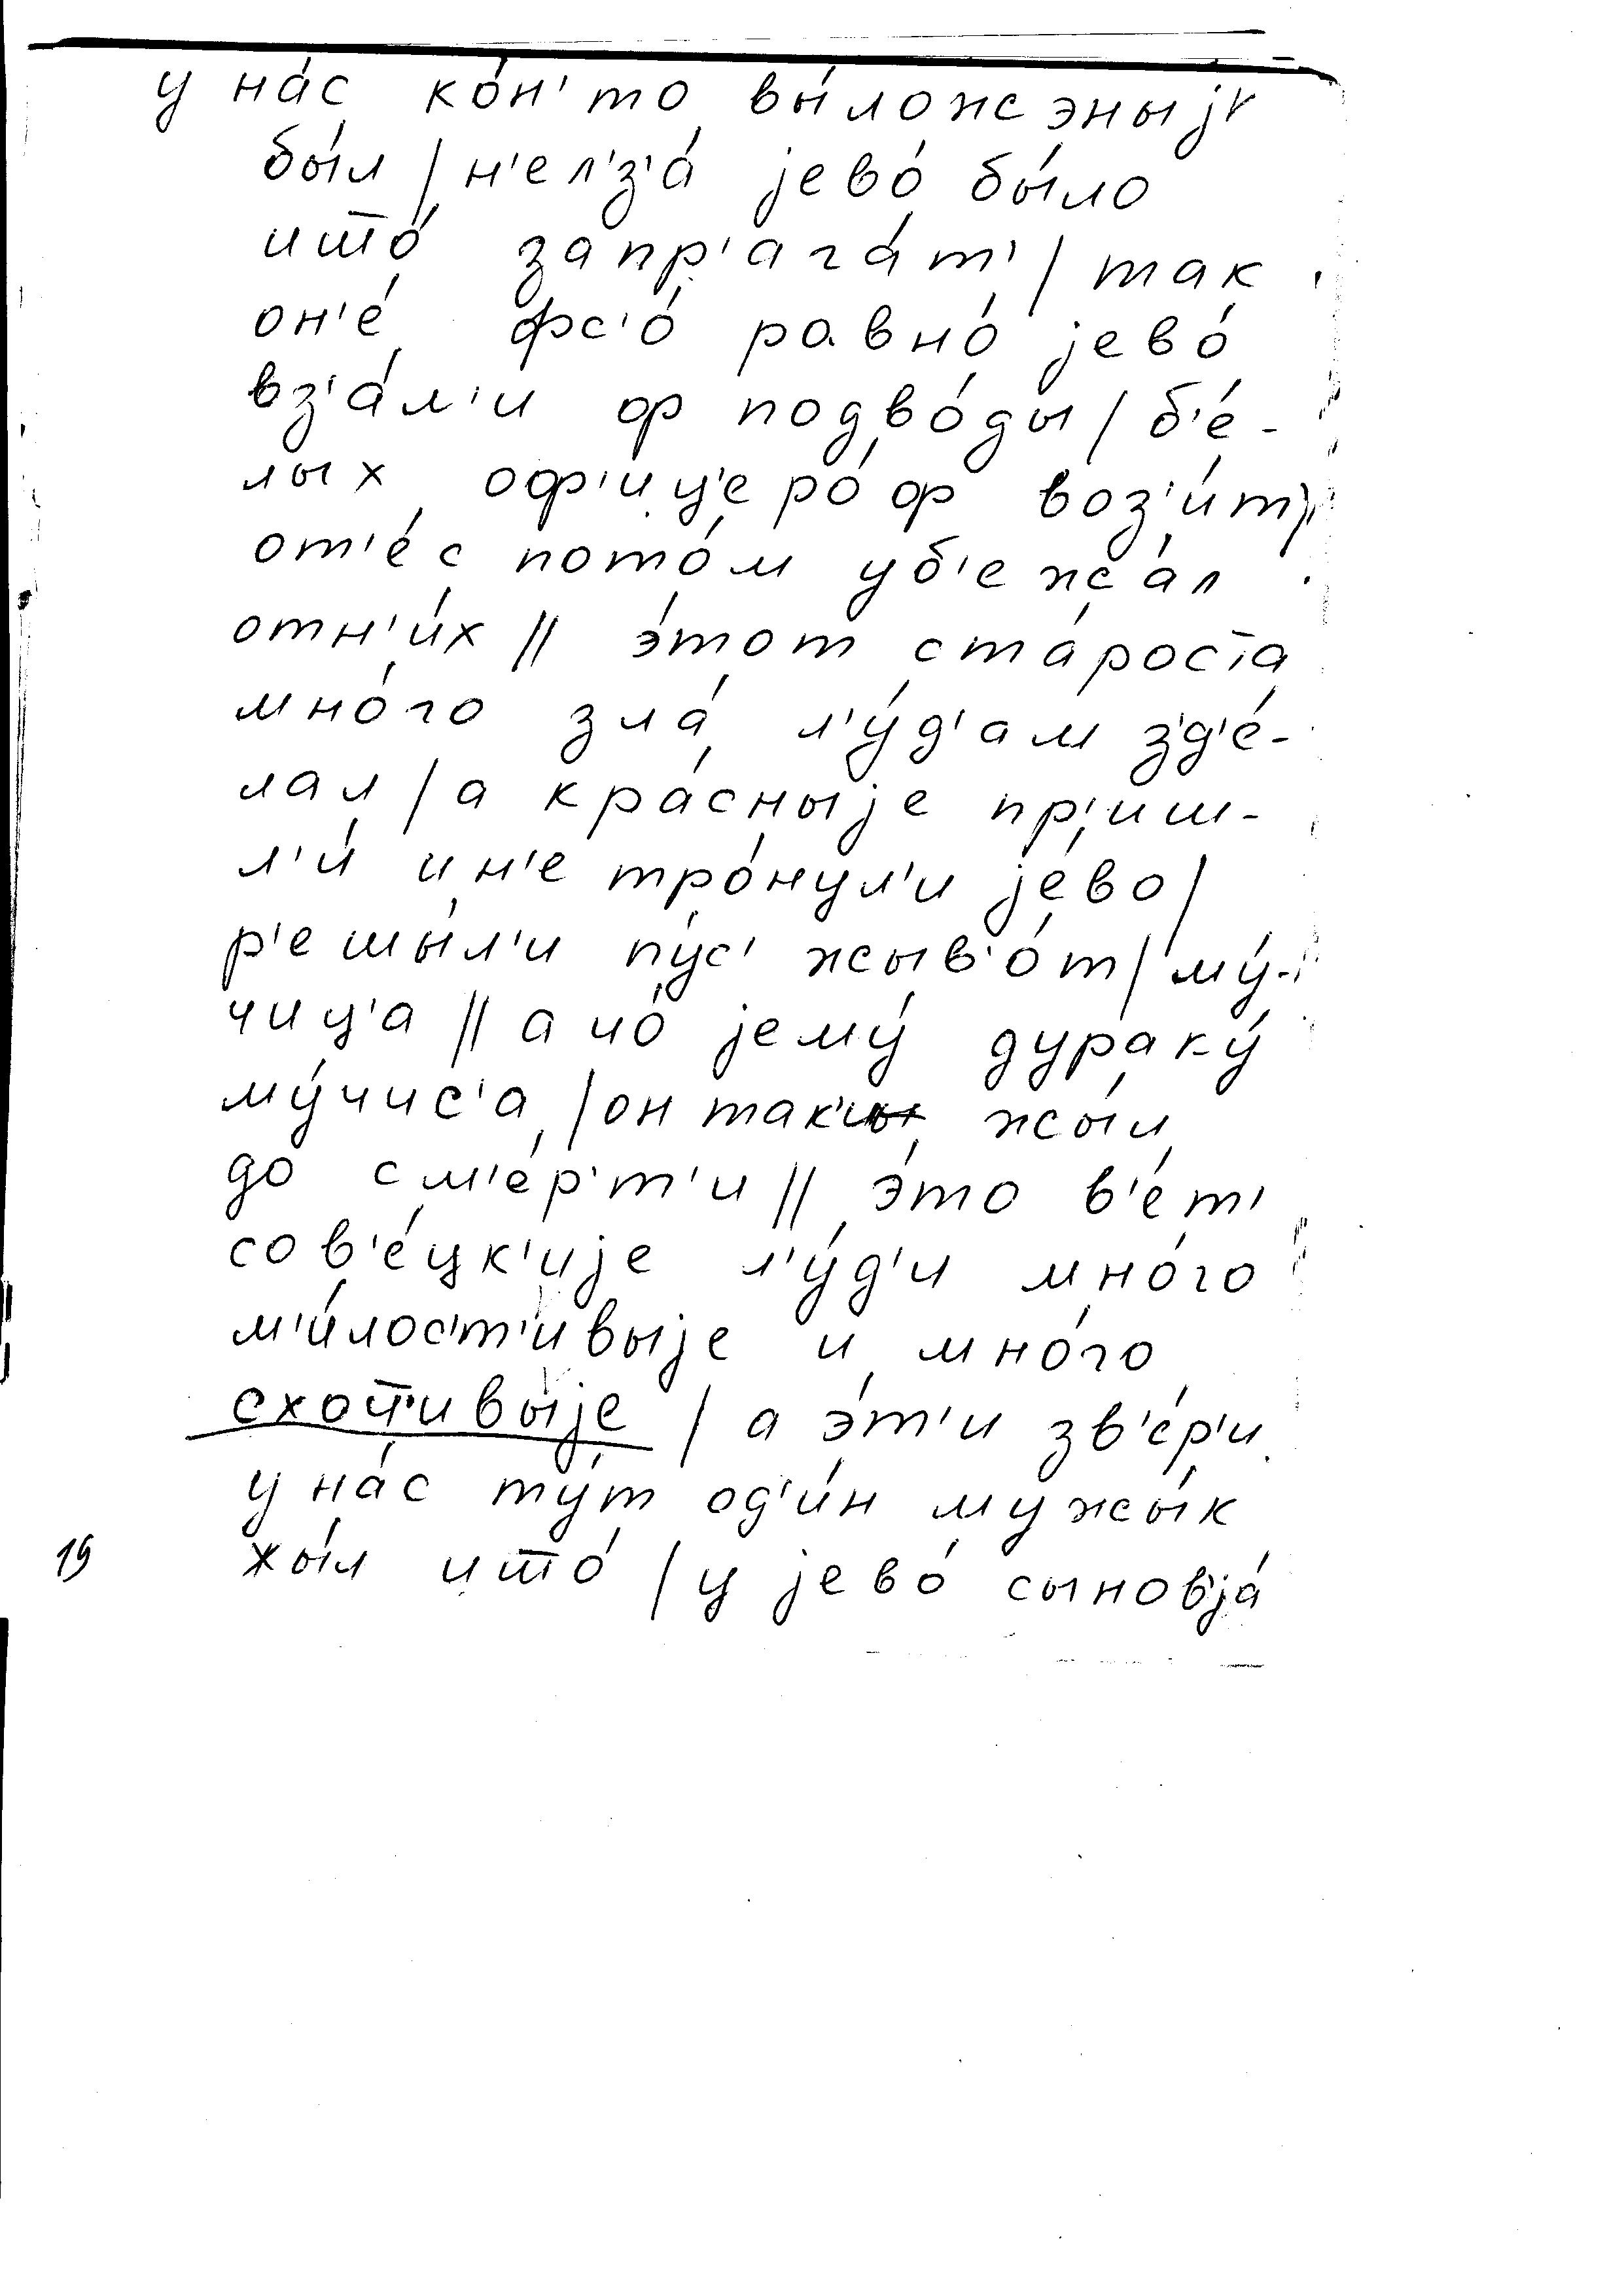 у на́с ко́н'то вы́ложэныј
бы́л / н'ел'з'а́ јево́ бы́ло
ишто́ запр'ага́т' / так
он'е́ фс'о́ равно́ јево́
вз'а́л'и ф подво́ды / б'е́-
лых оф'иц'еро́ф воз'и́т'
от'е́с пото́м уб'ежа́л
отн'и́х // э́тот ста́роста
мно́го зла́ л'у́д'ам з'д'е́-
лал / а кра́сныје пр'иш-
л'и́ и н'е тро́нул'и је́во /
р'ешы́л'и пу́с' жыв'о́т / му́-
чиц'а // а чо́ јему́ дураку́
му́чис'а / он так'и жы́л
до см'е́р'т'и // э́то в'е́т'
сов'е́цк'ије л'у́д'и мно́го
м'и́лос'т'ивыје и мно́го
схо́т'ивыје / а э́т'и зв'е́р'и
у на́с ту́т од'и́н мужы́к
жы́л ишто́ / у јево́ сыновја́
19